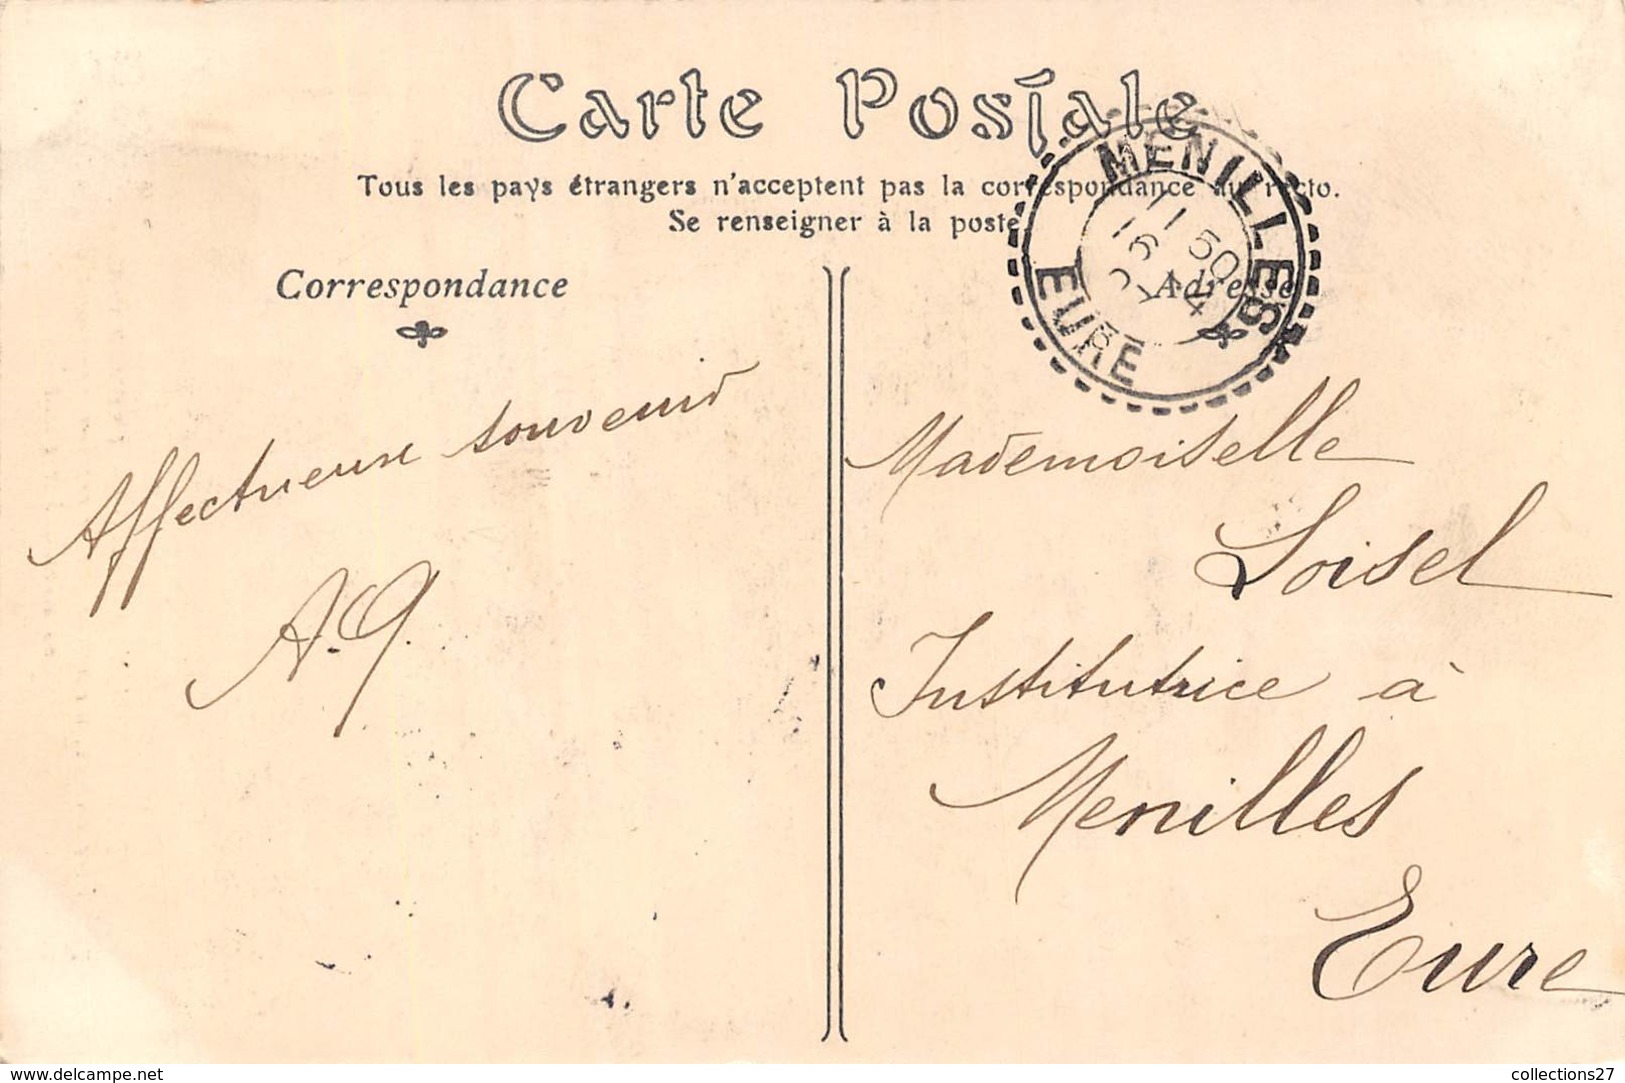 Carte Postale
Tous les pays étrangers n'acceptent pas la correspondance au recto.
Se renseigner à la poste
MENILLES
11 50
16
EURE
Correspondance
Adresse
Affectueux souvenir
A. G.
Mademoiselle
Loisel
Institutrice à
Menilles
Eure
www.delcampe.net
collections27